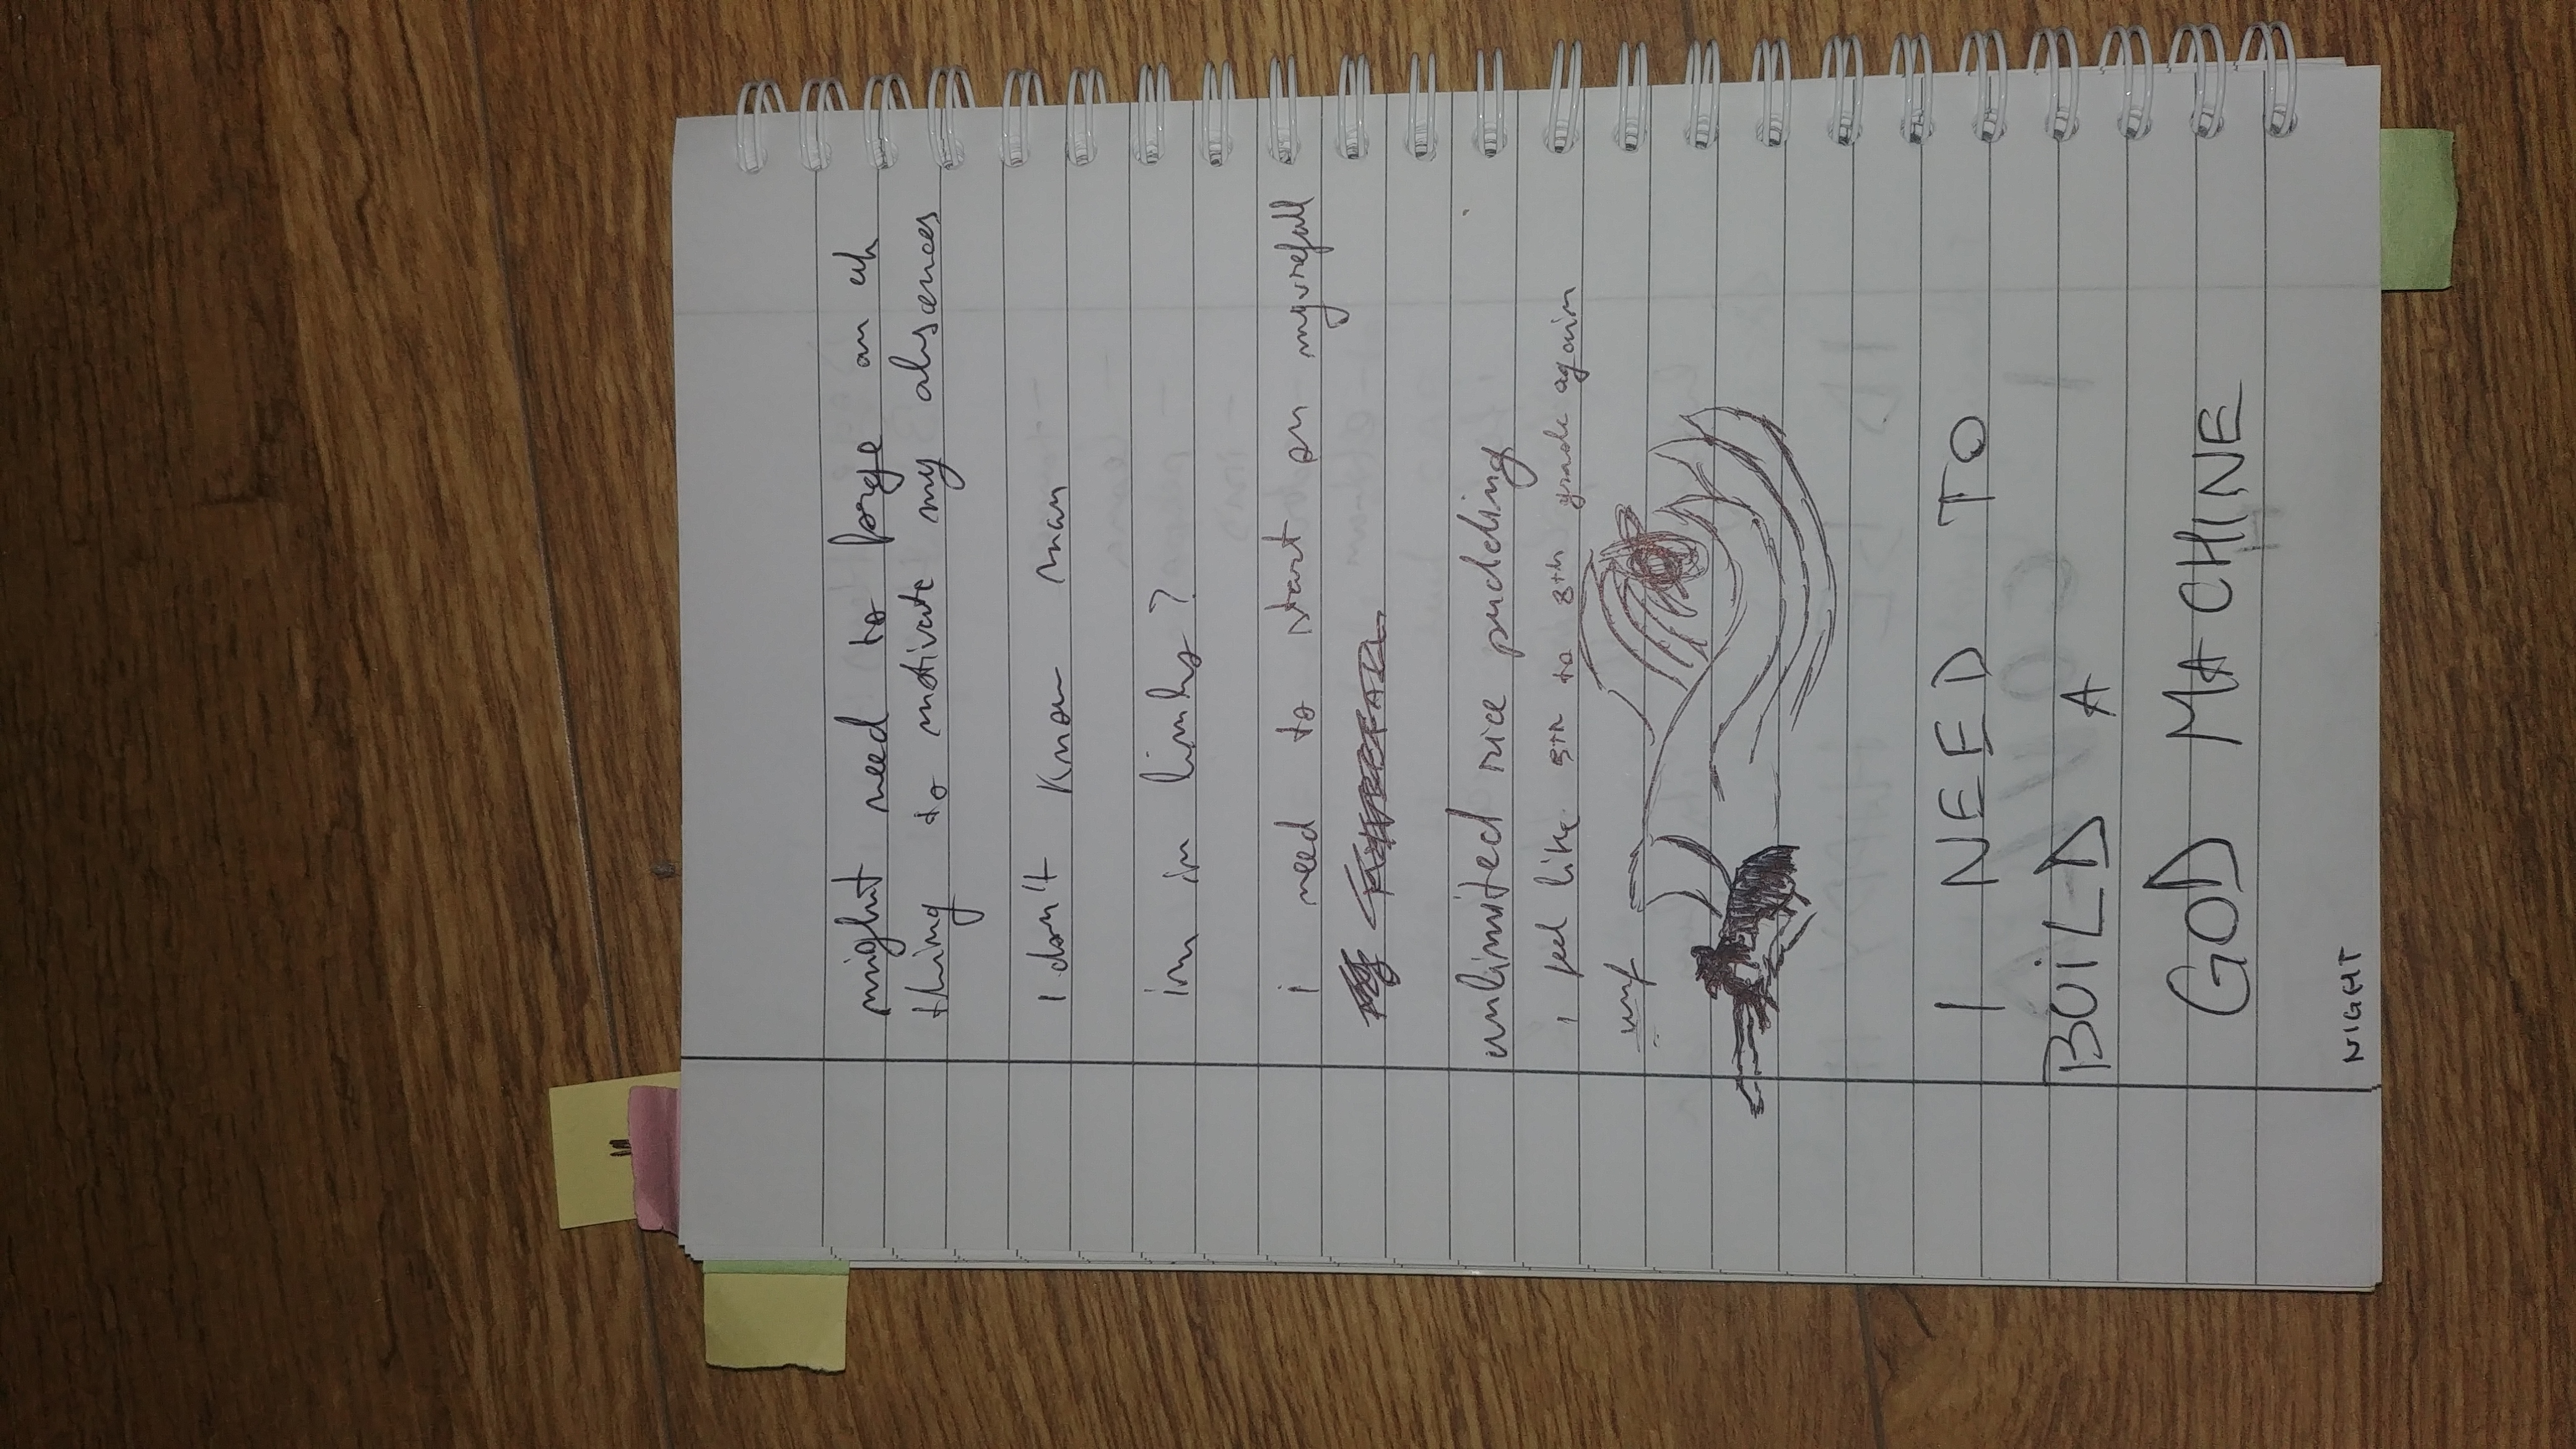 might need to forge an uh
thing to motivate my absences
I don't know man
im in limbo?
i need to start on myvrefall
unlimited rice pudding
i feel like 5th to 8th grade again
I NEED TO
BUiLD A
GOD MACHINE
NIGHT